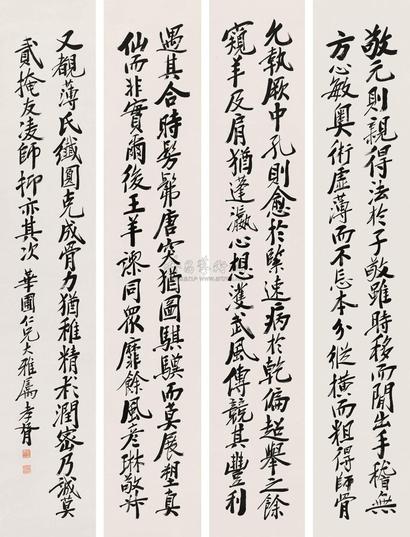 敬元則親得法於子敬雖時移而間出手稽無
方心敏奧術虛薄而不忘本分縱橫而粗得師骨
允執厥中孔則愈於緊速病於乾偏超舉之餘
窺羊及肩猶蓬瀛心想濩武風傳競其豐利
遇其合時髣髴唐突猶圖騏驥而莫展塑真
仙而非實爾後王羊謬同眾靡餘風彥琳敬叔
又觀薄氏纖圓克成骨力猶稚精於潤密乃誠莫
貳掩友凌師抑亦其次 華圃仁兄大雅屬 孝胥